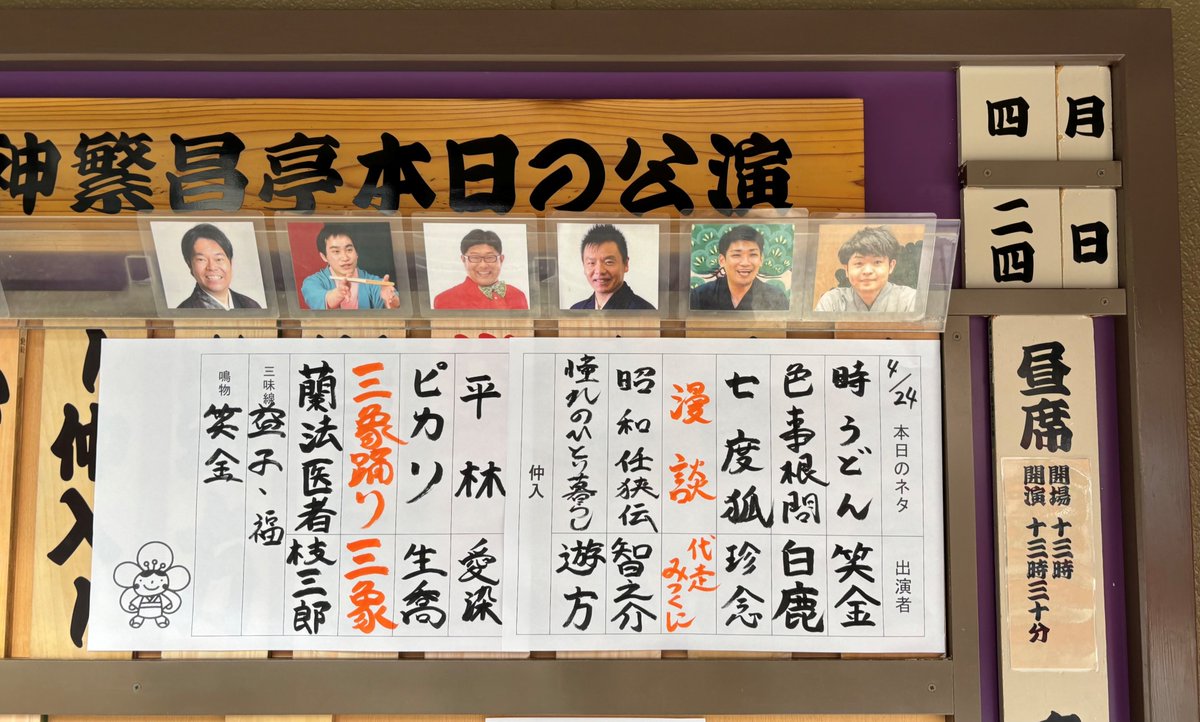 神繁昌亭本日の公演
四月
二四日
昼席
開場 十三時
開演 十三時三十分
4/24 本日のネタ 出演者
時うどん 笑金
色事根問 白鹿
七度狐 珍念
漫談 代走 みつくに
昭和任侠伝 智之介
憧れのひとり暮らし 遊方
仲入
平林 愛染
ピカソ 生喬
三象踊り 三象
蘭法医者 枝三郎
三味線 益子、福
鳴物 笑金
仲入り